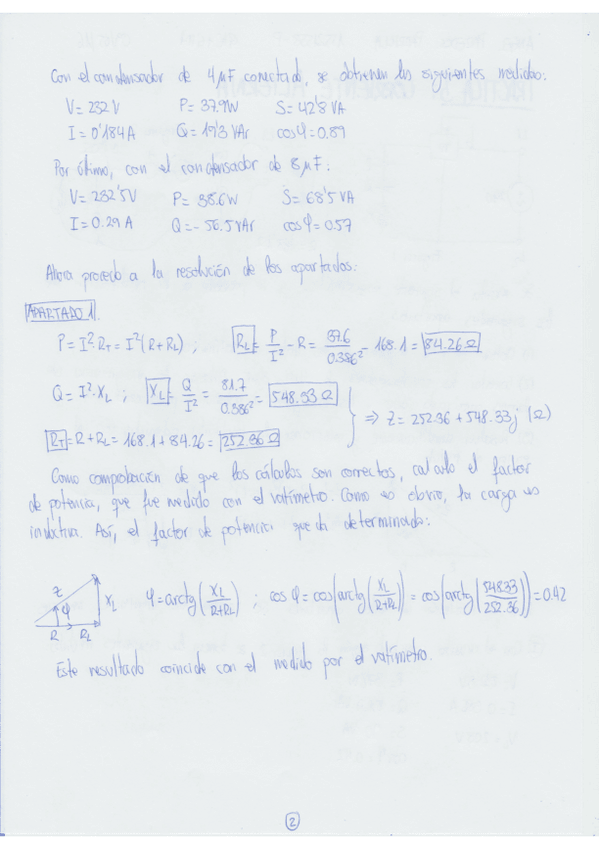 Con el condensador de 4µF conectado, se obtienen las siguientes medidas:
V = 232 V   P = 37.9W   S = 42'8 VA
I = 0'184 A   Q = 19'3 VAr   cosφ = 0.89
Por último, con el condensador de 8µF:
V = 232'5V   P = 38.6W   S = 68'5 VA
I = 0.29 A   Q = -56.5 VAr   cosφ = 0.57
Ahora procedo a la resolución de los apartados:
APARTADO 1.
P = I²·R_T = I²(R+R_L) ; R_L = P/I² - R = 37.6/0.386² - 168.1 = 84.26 Ω
Q = I²·X_L ; X_L = Q/I² = 81.7/0.386² = 548.33 Ω
⇒ Z = 252.36 + 548.33j (Ω)
R_T = R+R_L = 168.1 + 84.26 = 252.36 Ω
Como comprobación de que los cálculos son correctos, calculo el factor
de potencia, que fue medido con el vatímetro. Como es obvio, la carga es
inductiva. Así, el factor de potencia queda determinado:
Z φ X_L R R_L
φ = arctg(X_L/(R+R_L)) ; cos φ = cos(arctg(X_L/(R+R_L))) = cos(arctg(548.33/252.36)) = 0.42
Este resultado coincide con el medido por el vatímetro.
2